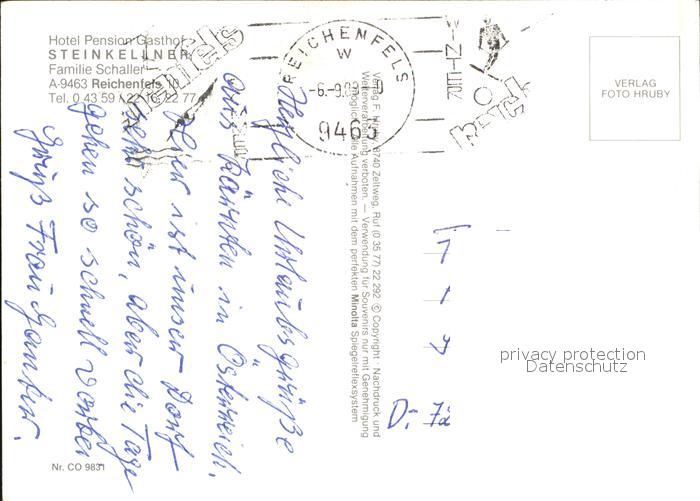 Hotel Pension Gasthof
STEINKELLNER
Familie Schaller
A-9463 Reichenfels 10
Tel. 0 43 59 / 22 16, 22 77
REICHENFELS
W
9463
WINTER
VERLAG
FOTO HRUBY
Herzliche Urlaubsgrüße
aus Kärnten in Österreich.
Hier ist unser Dorf
sehr schön, aber die Tage
gehen so schnell vorbei
Gruß Frau
Verlag F. Hruby, 8740 Zeltweg. Ruf (0 35 77) 22 292. © Copyright - Nachdruck und
Weiterveräußerung verboten. — Verwendung für Souvenirs nur mit Genehmigung
möglich. Alle Aufnahmen mit dem perfekten Minolta Spiegelreflexsystem
privacy protection
Datenschutz
Nr. CO 9831